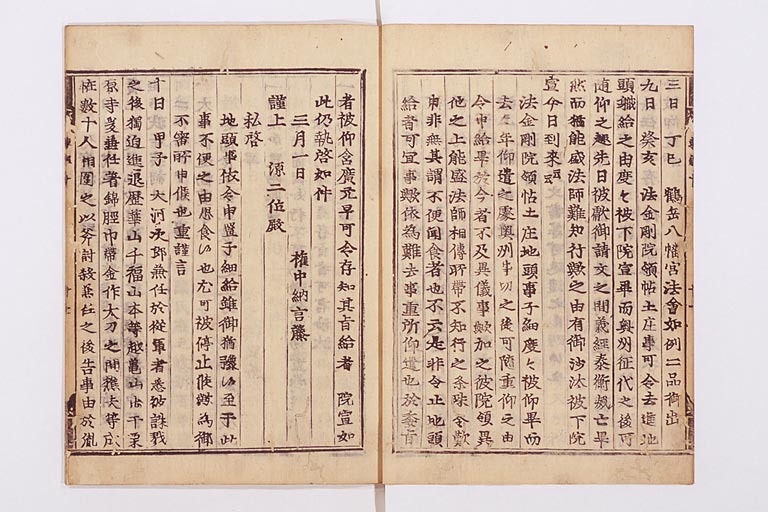 三日 丁巳 鶴岳八幡宮法會如例二品御出
九日 癸亥 法金剛院領怗土庄事可令去進地
頭職給之由度々被下院宣畢而奥州征代之後可
随仰之趣先日被獻御請文之間義經泰衡滅亡畢
然而猶能盛法師難知行歟之由有御沙汰被下院
宣今日到來云云
法金剛院領怗土庄地頭事子細度々被仰畢而
去々年仰遣之處奥州事切之後可随重仰之由
令申給畢於今者不及異儀事歟加之彼院領異
他之上能盛法師相傳所帶不知行之条殊令歎
申非無其謂不便聞食者也不云是非令止地頭
給者可宜事歟依為難去事重所仰遣也於委旨
者被仰含廣元早可令存知其旨給者 院宣如
此仍執啓如件
三月一日 權中納言藤
謹上 源二位殿
私啓
地頭事依令申置子細給雖御猶豫候至于此
大事不便之由思食候也尤可被停止候歟為御
不審所申候也重謹言
十日 甲子 大河次郎兼任於從軍者悉被誅戮
之後獨迫進退歴華山千福山本等越龜山出于栗
原寺爰兼任著錦脛巾帶金作太刀之間樵夫等成
恠數十人相圍之以斧討殺兼任之後告事由於胤